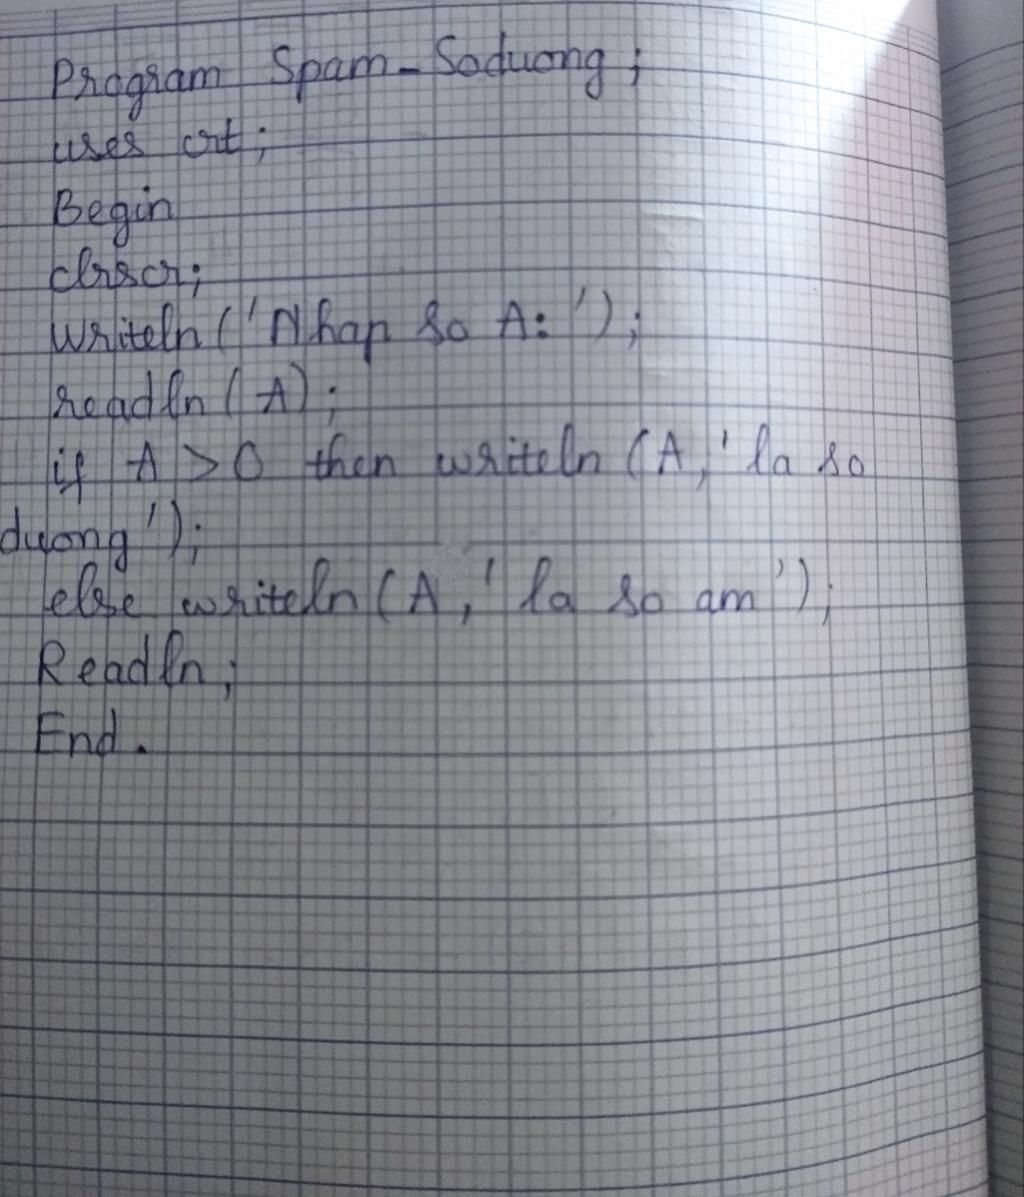 Program Spam_Soduong;
uses crt;
Begin
clrscr;
Writeln('Nhap so A: ');
readln(A);
if A > 0 then writeln (A, ' la so
duong');
else writeln (A, ' la so am');
Readln;
End.